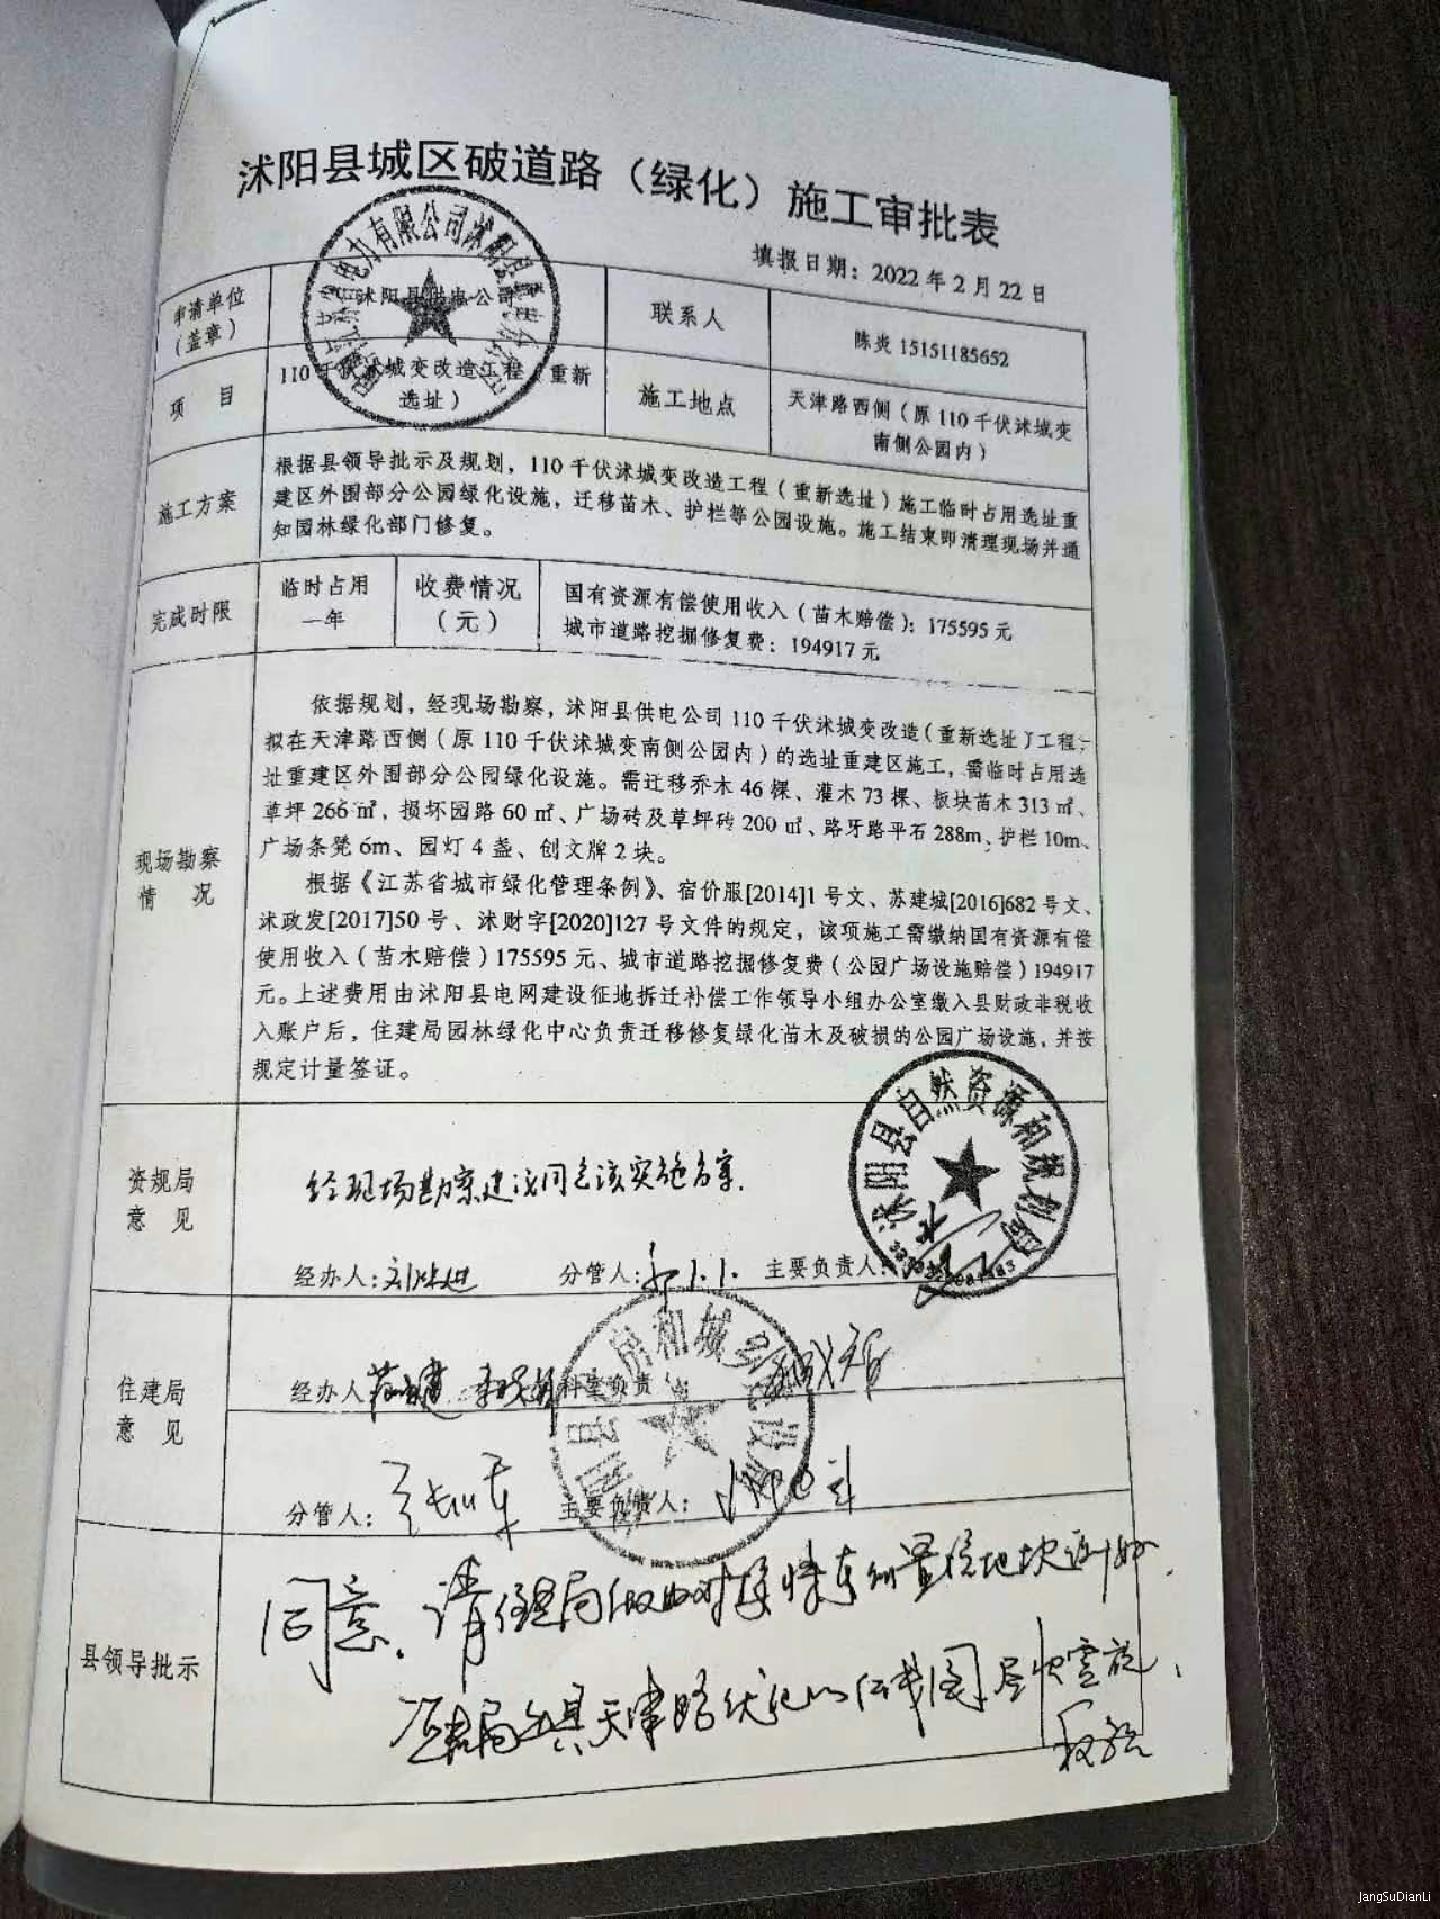 沭阳县城区破道路（绿化）施工审批表
填报日期：2022年2月22日
申请单位
（盖章）
沭阳县供电公司
联系人
陈炎 15151185652
项 目
110千伏沭城变改造工程（重新
选址）
施工地点
天津路西侧（原110千伏沭城变
南侧公园内）
施工方案
根据县领导批示及规划，110千伏沭城变改造工程（重新选址）施工临时占用选址重
建区外围部分公园绿化设施，迁移苗木、护栏等公园设施。施工结束即清理现场并通
知园林绿化部门修复。
完成时限
临时占用
一年
收费情况
（元）
国有资源有偿使用收入（苗木赔偿）：175595元
城市道路挖掘修复费：194917元
现场勘察
情 况
依据规划，经现场勘察，沭阳县供电公司110千伏沭城变改造（重新选址）工程，
拟在天津路西侧（原110千伏沭城变南侧公园内）的选址重建区施工，需临时占用选
址重建区外围部分公园绿化设施。需迁移乔木46棵、灌木73棵、板块苗木313㎡、
草坪266㎡，损坏园路60㎡、广场砖及草坪砖200㎡、路牙路平石288m、护栏10m、
广场条凳6m、园灯4盏、创文牌2块。
根据《江苏省城市绿化管理条例》、宿价服[2014]1号文、苏建城[2016]682号文、
沭政发[2017]50号、沭财字[2020]127号文件的规定，该项施工需缴纳国有资源有偿
使用收入（苗木赔偿）175595元、城市道路挖掘修复费（公园广场设施赔偿）194917
元。上述费用由沭阳县电网建设征地拆迁补偿工作领导小组办公室缴入县财政非税收
入账户后，住建局园林绿化中心负责迁移修复绿化苗木及破损的公园广场设施，并按
规定计量签证。
资规局
意 见
经现场勘察建议同意该实施方案.
沭阳县自然资源和规划局
经办人：
分管人：
主要负责人：
住建局
意 见
经办人
科室负责
沭阳县住房和城乡建设局
分管人：
主要负责人：
县领导批示
同意.请住建局
天津路
JangSuDianLi